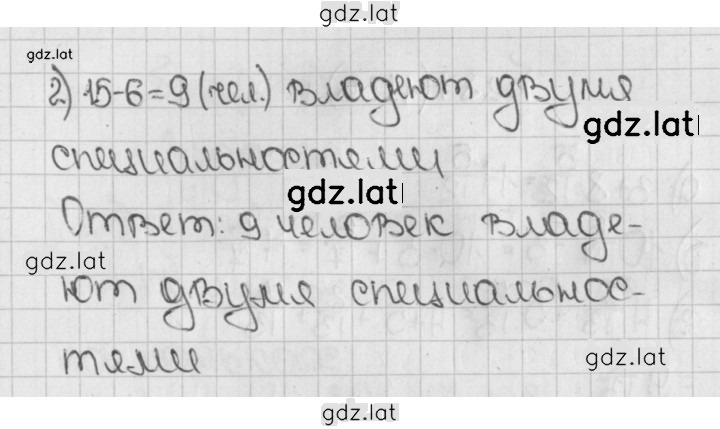 gdz.lat
gdz.lat
2) 15-6=9 (чел.) владеют двумя
gdz.lat
специальностями
gdz.lat
Ответ: 9 человек владе-
gdz.lat
ют двумя специальнос-
тями
gdz.lat
gdz.lat